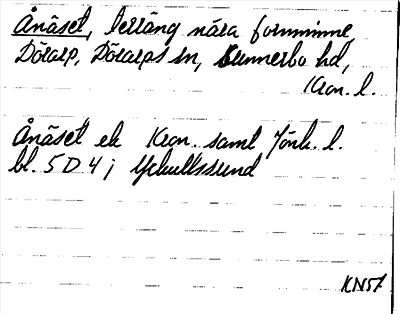 Ånäset, terräng nära fornminne,
Dörarp, Dörarps sn, Sunnerbo hd,
Kron. l.
Ånäset ek Kron. samt Jönk. l.
bl. 5 D 4 j
KN57